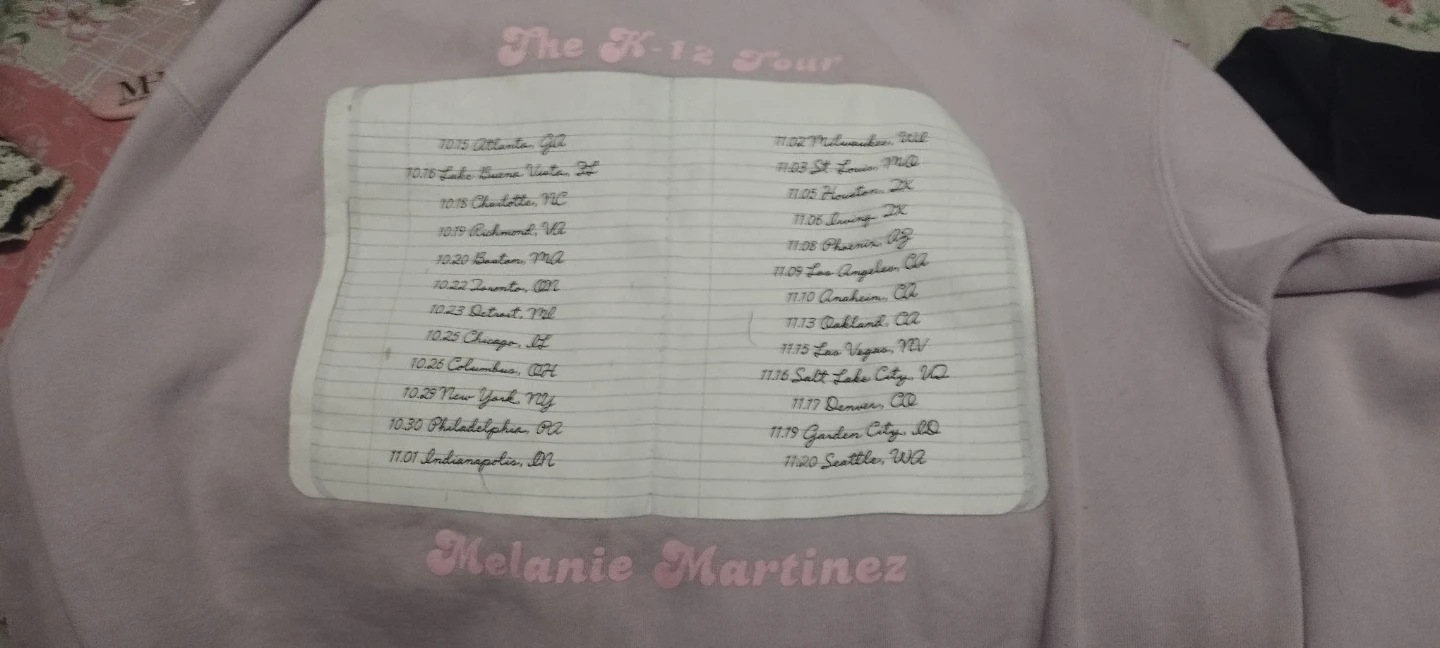 The K-12 Tour
10.15 Atlanta, GA
10.16 Lake Buena Vista, FL
10.18 Charlotte, NC
10.19 Richmond, VA
10.20 Boston, MA
10.22 Toronto, ON
10.23 Detroit, MI
10.25 Chicago, IL
10.26 Columbus, OH
10.29 New York, NY
10.30 Philadelphia, PA
11.01 Indianapolis, IN
11.02 Milwaukee, WI
11.03 St. Louis, MO
11.05 Houston, TX
11.06 Irving, TX
11.08 Phoenix, AZ
11.09 Los Angeles, CA
11.10 Anaheim, CA
11.13 Oakland, CA
11.15 Las Vegas, NV
11.16 Salt Lake City, UT
11.17 Denver, CO
11.19 Garden City, ID
11.20 Seattle, WA
Melanie Martinez